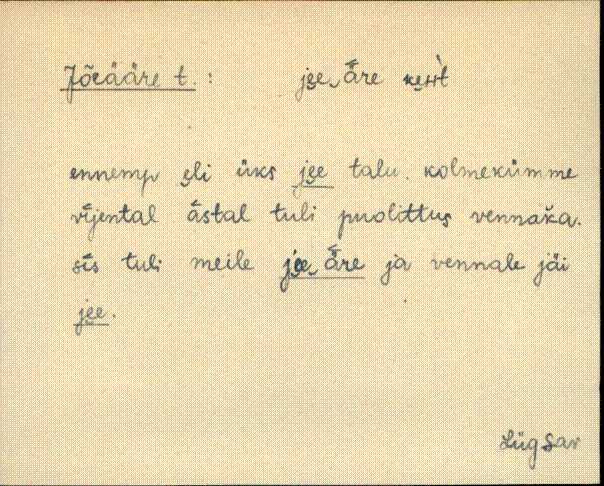 Jõeääre t. : jee‿ǟre keнt̀
ennemp eli üks jee talu. kolmekümme
vījental āstal tuli puolittus vennaǩa.
sīs tuli meile jee‿ǟre ja vennale jäi
jee.
Lüg Sar